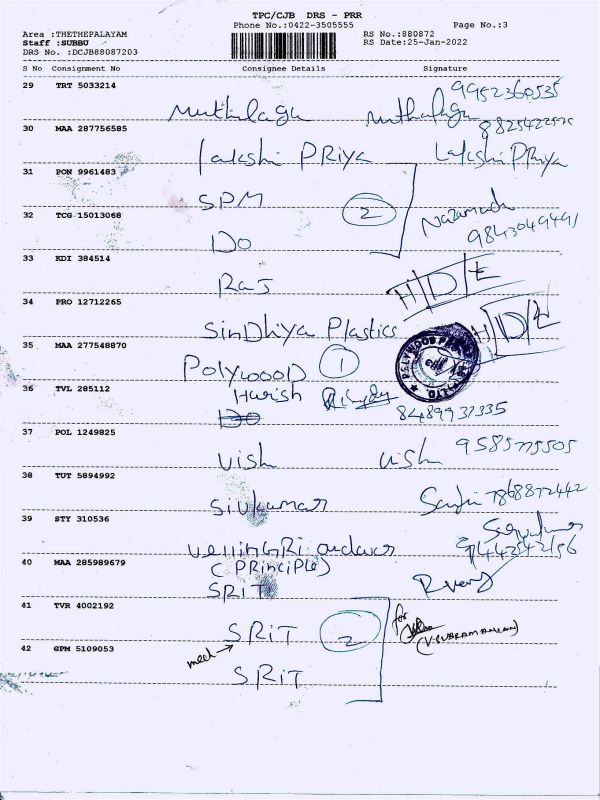 TPC/CJB DRS - PRR
Phone No.:0422-3505555
Page No.:3
Area :THETHEPALAYAM
Staff :SUBBU
DRS No. :DCJB88087203
RS No.:880872
RS Date:25-Jan-2022
S No Consignment No Consignee Details Signature
29 TRT 5033214
Muthilagu Muthulagu 9952360535
30 MAA 287756585
8825422575
lakshi PRIYA Lakshi PRiya
31 PCN 9961483
SPM
2
32 TCG 15013068
9843049491
DO
33 KDI 384514
RaJ H/D/E
34 PRO 12712265
SinDhiya Plastics H/D/E
35 MAA 277548870
POLYWOOOD 1
36 TVL 285112
Harish
8489937335
DO
37 POL 1249825
Vish Vish 9585775505
38 TUT 5894992
Sivkumar 7868872442
39 STY 310536
9442542156
(PRinciPle)
40 MAA 285989679
SRIT
41 TVR 4002192
for
SRIT 2
(V.SUBRAMANIAN)
mech
42 GPM 5109053
SRIT